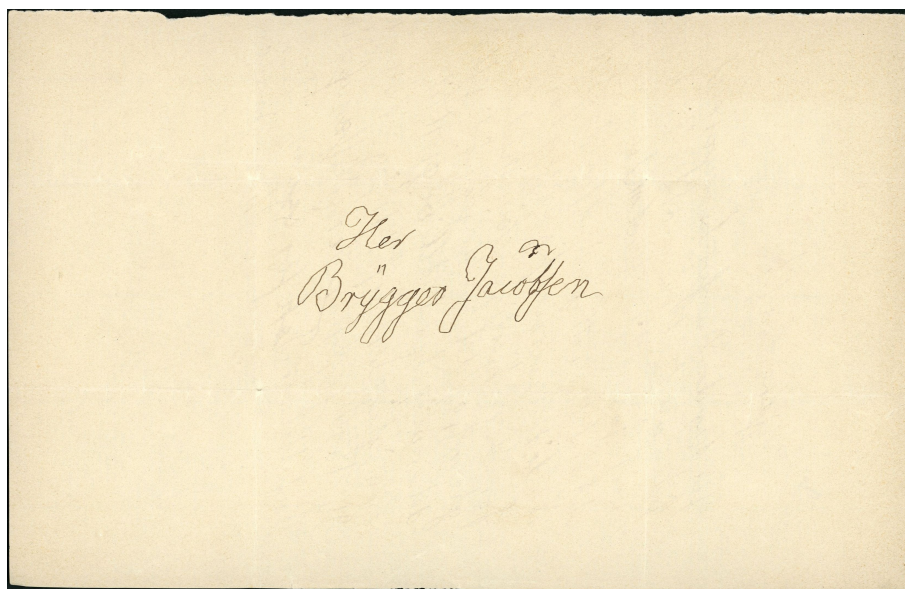 Her
Brÿgger Jacobsen